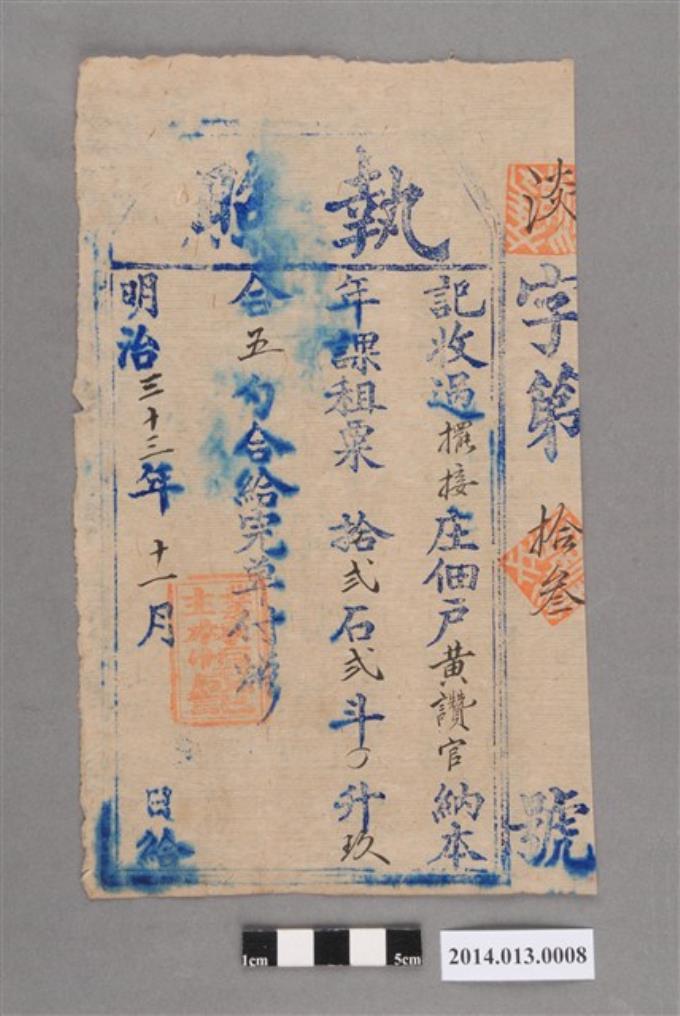 淡字第拾叁號
執照
記收過擺接庄佃戶黃讚官納本
年課租粟拾弍石弍斗〇升玖
合五勺合給完單付照
明治三十三年十一月 日給
1cm 5cm
2014.013.0008